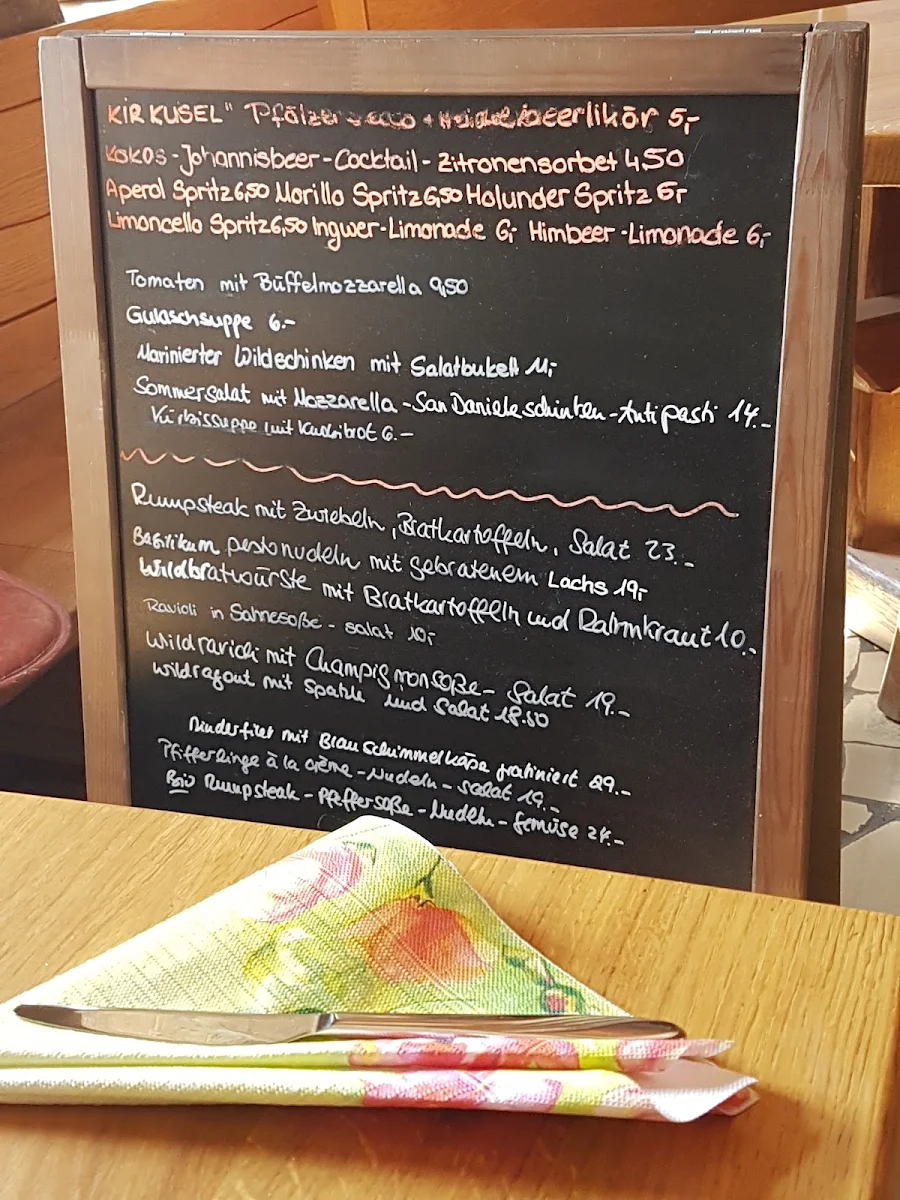 KIR KUSEL" Pfälzer secco + heidelbeerlikör 5,-
Kokos-Johannisbeer-Cocktail-Zitronensorbet 4,50
Aperol Spritz 6,50 Morillo Spritz 6,50 Holunder Spritz 6,-
Limoncello Spritz 6,50 Ingwer-Limonade 6,- Himbeer-Limonade 6,-
Tomaten mit Büffelmozzarella 9,50
Gulaschsuppe 6.-
Marinierter Wildschinken mit Salatbukett 11,-
Sommersalat mit Mozzarella-San Danieleschinken-Antipasti 14.-
Kürbissuppe mit Knoblibrot 6.-
Rumpsteak mit Zwiebeln, Bratkartoffeln, Salat 23.-
Basilikum pestonudeln mit gebratenem Lachs 19,-
Wildbratwürste mit Bratkartoffeln und Rahmkraut 10.-
Ravioli in Sahnesoße - salat 10,-
Wildravioli mit Champignonsoße - Salat 19.-
Wildragout mit Spätzle und Salat 18.50
Rinderfilet mit Blauschimmelkäse gratiniert 29.-
Pfifferlinge à la crème - Nudeln - salat 19.-
Bio Rumpsteak - Pfeffersoße - Nudeln - Gemüse 24.-